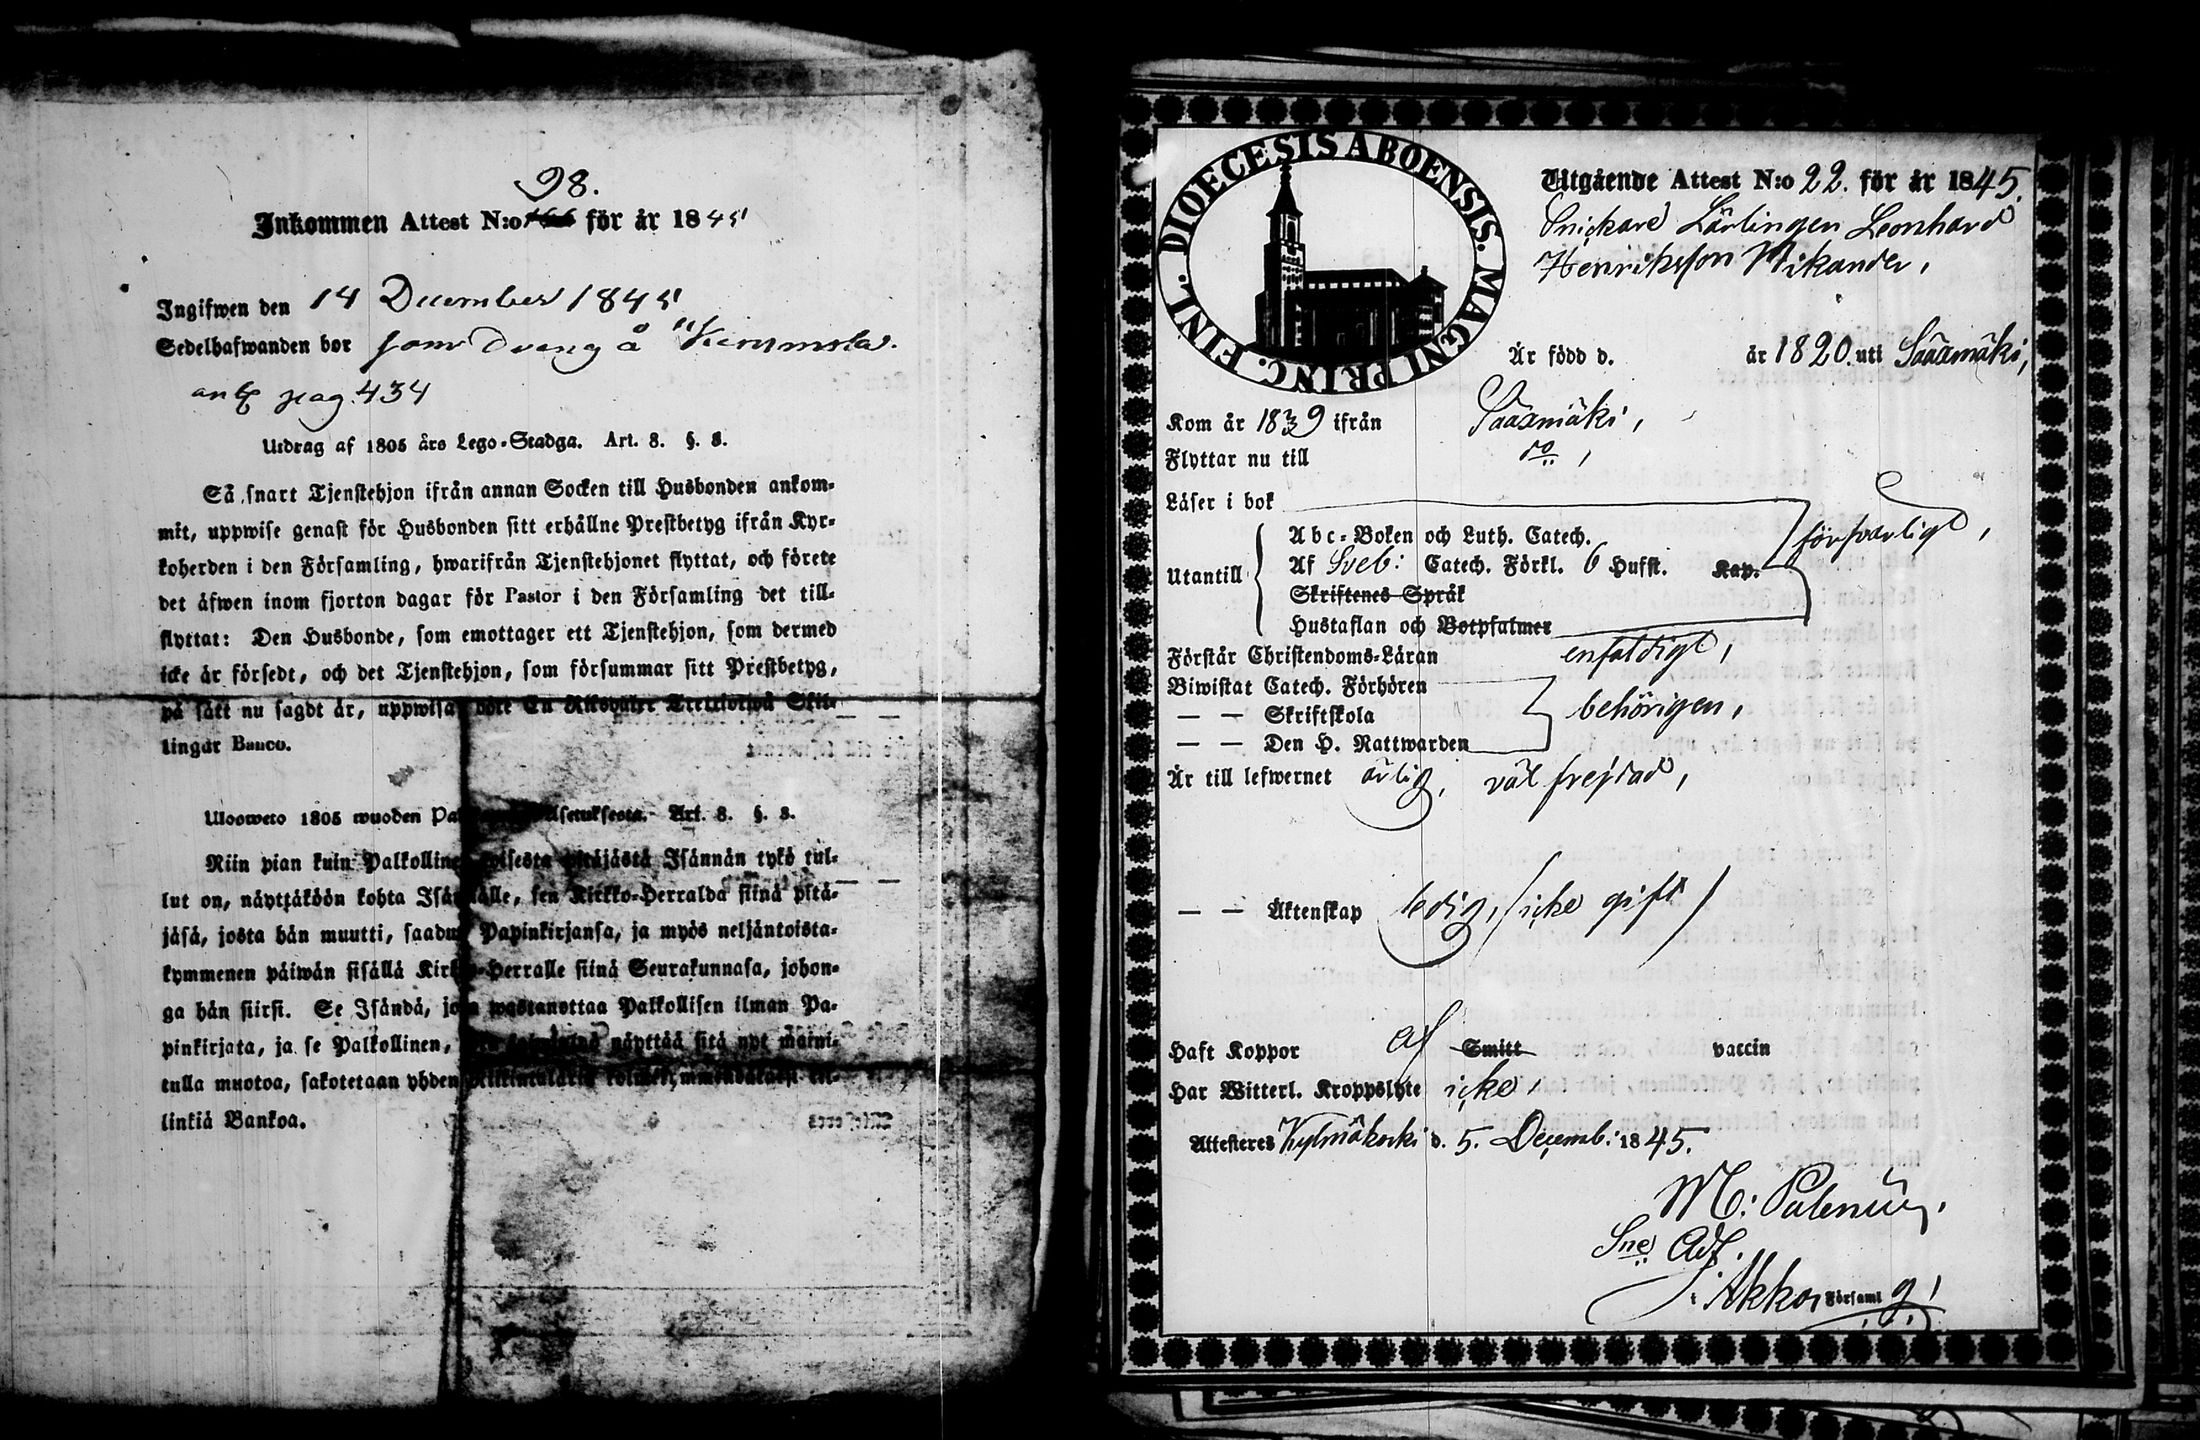 98.
Inkommen Attest N:o för år 1845
Ingifwen den 14 December 1845
Sedelhafwanden bor som Dreng å
pag. 434
Utdrag af 1805 års Lego-Stadga. Art. 8. §. 8.
Så snart Tjenstehjon ifrån annan Socken till Husbonden ankom-
mit, uppwise genast för Husbonden sitt erhållne Prestbetyg ifrån Kyr-
koherden i den Församling, hwarifrån Tjenstehjonet flyttat, och förete
det äfwen inom fjorton dagar för Pastor i den Församling det till-
flyttat: Den Husbonde, som emottager ett Tjenstehjon, som dermed
icke är försedt, och det Tjenstehjon, som försummar sitt Prestbetyg,
på sätt nu sagdt är, uppwisa, böte En Riksdaler Trettiotwå Skil-
lingar Banco.
Ulosweto 1805 wuoden Art. 8. §. 8.
Niin pian kuin Palkollinen toisesta pitäjästä Isännän tykö tul-
lut on, näyttäköön kohta Isännälle, sen Kirkko-Herralda siinä pitä-
jäsä, josta hän muutti, saadun Papinkirjansa, ja myös neljäntoista-
kymmenen päiwän sisällä Kirkko-Herralle siinä Seurakunnasa, johon-
ga hän siirsi. Se Isändä, joka wastanottaa Palkollisen ilman Pa-
pinkirjata, ja se Palkollinen, näyttää sitä nyt maini-
tulla muotoa, sakotetaan yhden
linkiä Bankoa.
DIOECESIS ABOENSIS. MAGNI PRINC. FINL.
Utgående Attest N:o 22. för år 1845.
Snickare Lärlingen Leonhard
Henriksson Wikander,
Är född d. år 1820. uti Sääxmäki,
Kom år 1839 ifrån Sääxmäki,
Flyttar nu till do,
Läser i bok
försvarligt,
Utantill
Abc-Boken och Luth. Catech.
Af Sveb: Catech. Förkl. 6 Hufst. Kap.
Skriftenes Språk
Hustaflan och Botpsalmer
Förstår Christendoms-Läran enfaldigt,
Biwistat Catech. Förhören
— — Skriftskola behörigen,
— — Den H. Nattwarden
Är till lefwernet ärlig, väl frejdad,
— — Äktenskap ledig, (icke gift)
Haft Koppor af Smitt vaccin
Har Witterl. Kroppslyte icke,
Attesteres Kylmäkoski d. 5. Decemb: 1845.
M: Palenius,
Sne Adj.
i Akkas Församl g,